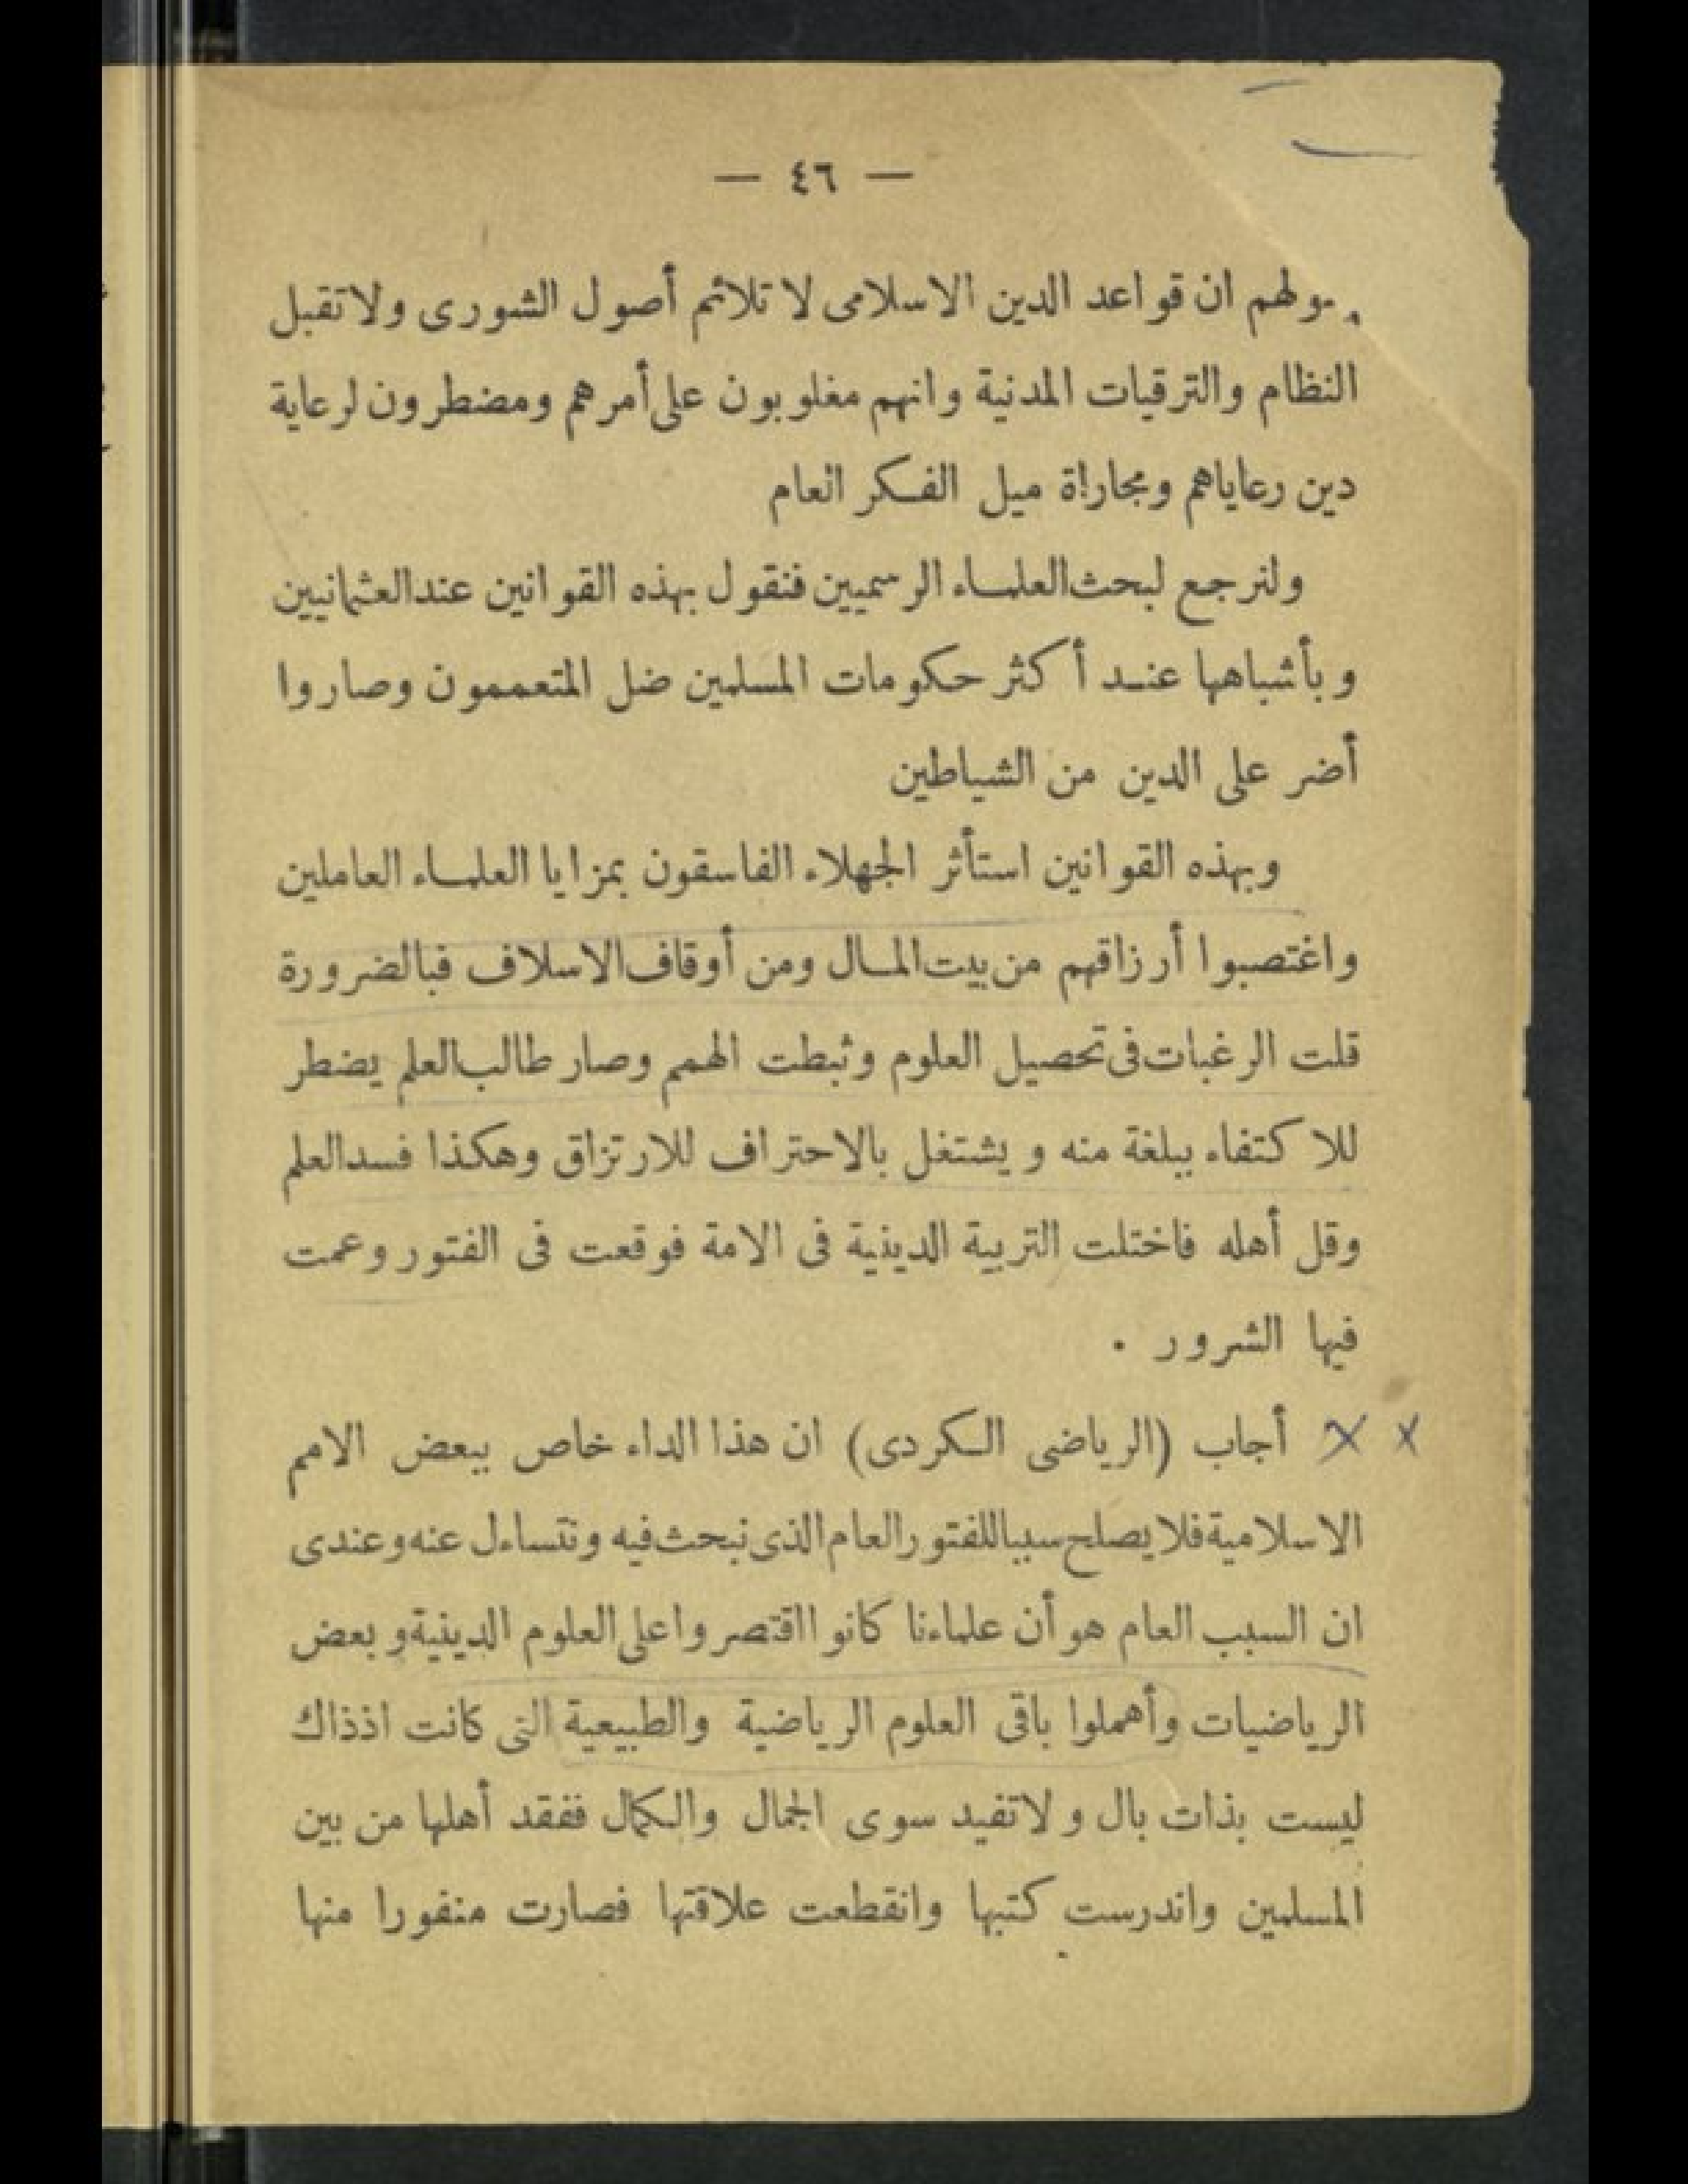 — ٤٦ —
ان قواعد الدين الاسلامى لا تلائم أصول الشورى ولا تقبل
النظام والترقيات المدنية وانهم مغلوبون على أمرهم ومضطرون لرعاية
دين رعاياهم ومجاراة ميل الفكر العام
ولنرجع لبحث العلماء الرسميين فنقول بهذه القوانين عند العثمانيين
وبأشباهها عند أكثر حكومات المسلمين ضل المتعممون وصاروا
أضر على الدين من الشياطين
وبهذه القوانين استأثر الجهلاء الفاسقون بمزايا العلماء العاملين
واغتصبوا أرزاقهم من بيت المال ومن أوقاف الاسلاف فبالضرورة
قلت الرغبات فى تحصيل العلوم وثبطت الهمم وصار طالب العلم يضطر
للاكتفاء ببلغة منه ويشتغل بالاحتراف للارتزاق وهكذا فسد العلم
وقل أهله فاختلت التربية الدينية فى الامة فوقعت فى الفتور وعمت
فيها الشرور .
أجاب (الرياضى الكردى) ان هذا الداء خاص ببعض الامم
الاسلامية فلا يصلح سببا للفتور العام الذى نبحث فيه ونتساءل عنه وعندى
ان السبب العام هو أن علماءنا كانوا اقتصروا على العلوم الدينية وبعض
الرياضيات وأهملوا باقى العلوم الرياضية والطبيعية التى كانت اذذاك
ليست بذات بال ولا تفيد سوى الجمال والكمال ففقد أهلها من بين
المسلمين واندرست كتبها وانقطعت علاقتها فصارت منفورا منها